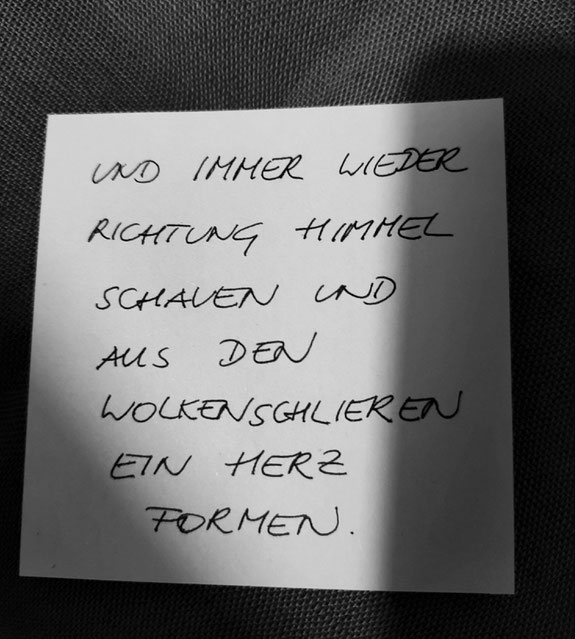 UND IMMER WIEDER
RICHTUNG HIMMEL
SCHAUEN UND
AUS DEN
WOLKENSCHLIEREN
EIN HERZ
FORMEN.